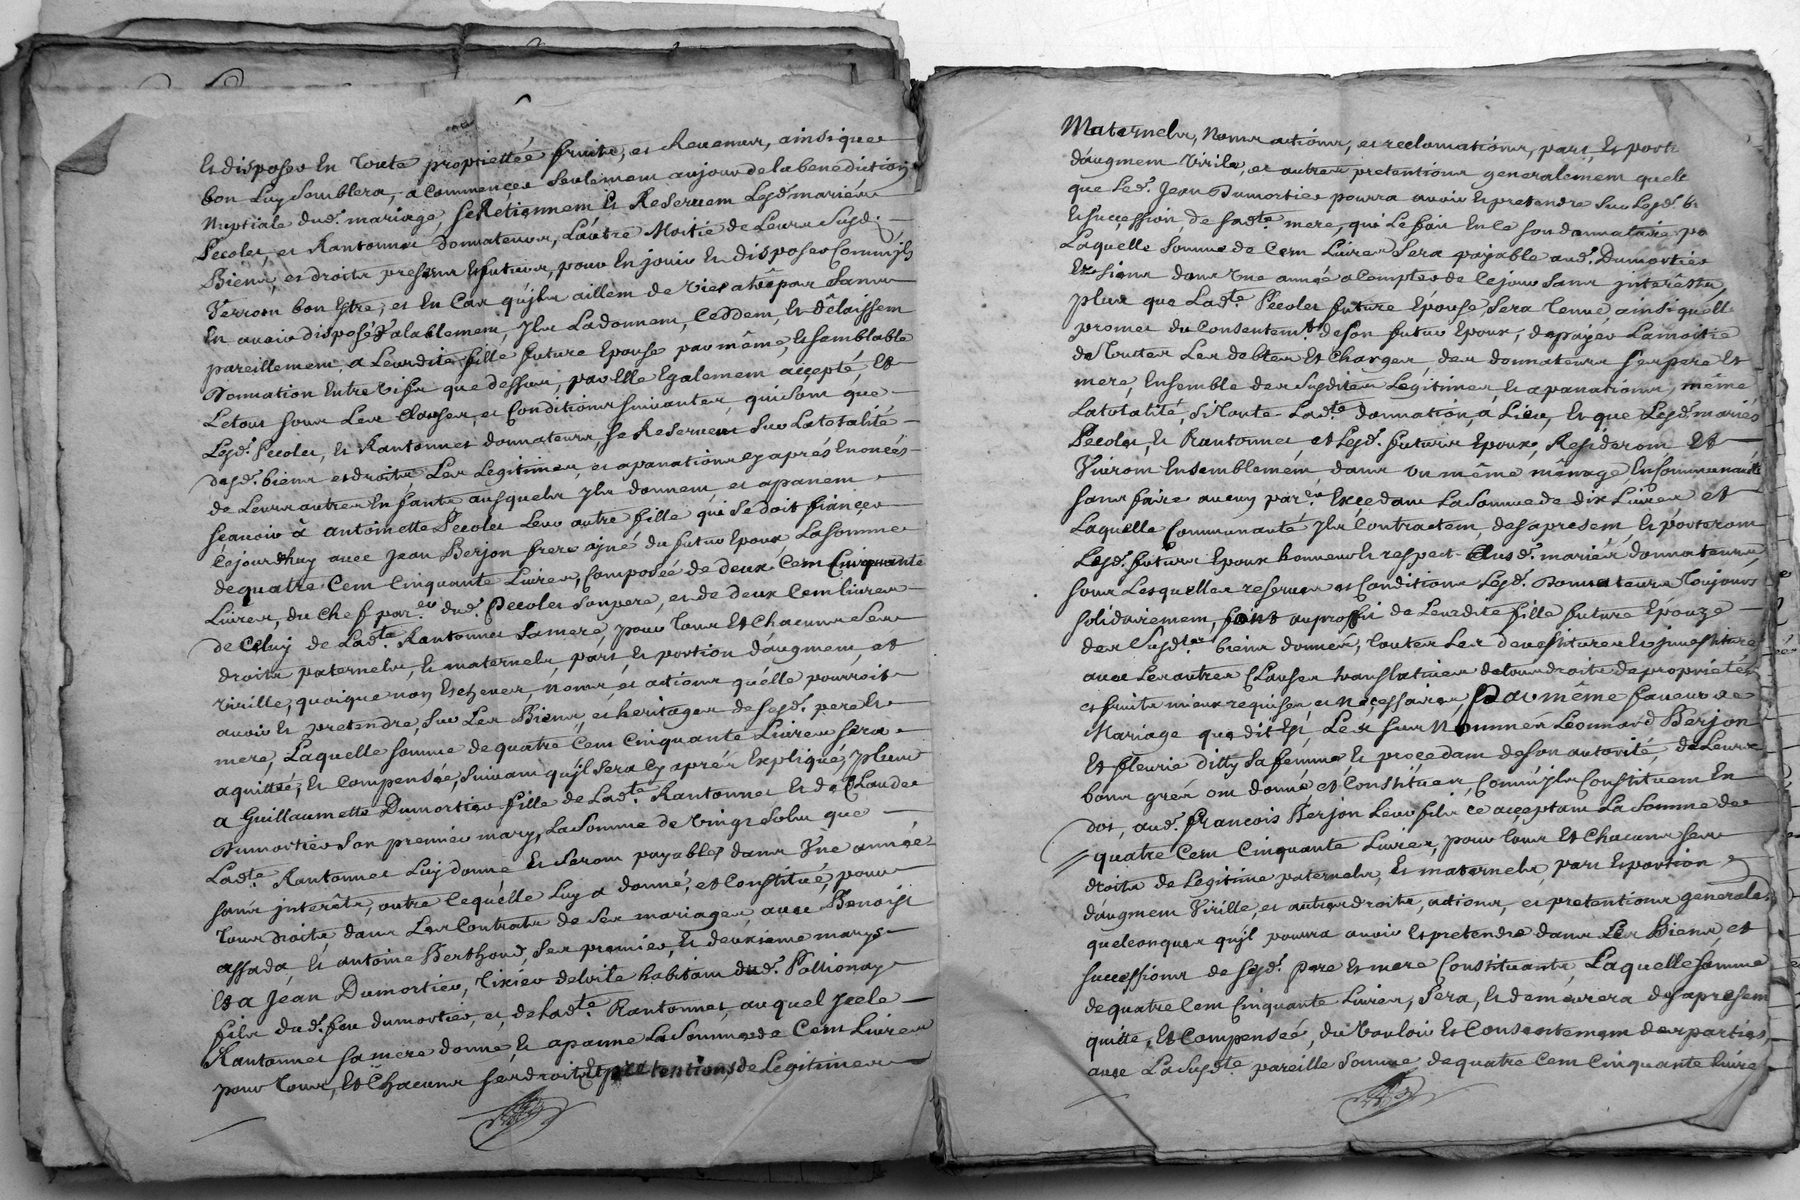 Et disposer En Toute proprietteé fruits, et Revenus, ainsi que
bon Luy Semblera, a commencer Seulement aujour de la benediction
Nuptiale dud. mariage, Se Retiennent Et Reservent Lesd. mariés
Pecolet, et Rantonnet Donnateurs, L'autre Moitié de Leurs Susd.
Biens, et droits presents Et futurs, pour En jouir En disposer Comm'ils
Verront bon Estre, et En Cas qu'jls aillent de vie a trépas Sans
En avoir disposés valablement, Jls La donnent, Ceddent, Et délaissent
pareillement, a Leurdite fille future Epouse par même, Et semblable
Donnation Entre vifs que dessus, par Elle Egalement accepté, Et
Le tout sous Les Clauses, et Conditions suivantes, qui sont que
Lesd. Pecolet, Et Rantonnet donnateurs, se Reservent Sur La totalité
desd. biens et droits, Les Legitimes, et apanations cy aprés Enoncés
de Leurs autres Enfants ausquels Jls donnent, et apanent
scavoir à antoinette Pecolet Leur autre fille qui se doit fiancer
Cejourdhuy avec Jean Berjon frere ajné du futur Epoux La somme
de quatre Cent Cinquante Livres, Composée de deux Cent Cinquante
Livres, du Chef par.er dud. Pecolet Son pere, et de deux Cent livres
de Celuy de Ladte. Rantonnet Sa mere, pour Tous Et Chacuns Ses
droits paternels, Et maternels, part, Et portion d'augment, et
virille, quoique non Escheües, noms, et actions qu'elle pourroit
avoir Et pretendre, Sur Les Biens, et heritages de sesd. pere Et
mere, Laquelle somme de quatre Cent Cinquante Livres sera
aquittée, Et Compensée, Suivant qu'jl sera Cy aprés Expliqué, plus
a Guillaumette Dumortier fille de Ladte. Rantonnet Et de Claude
Dumortier Son premier mary, La Somme de Vingt Sols que
Ladte. Rantonnet Luy donne Et Seront payables dans Une année
sans jnterêts, outre Lequelle Luy a donné, et Constitué, pour
Tous droits, dans Les Contrats de Ses mariages, avec Benoist
assada, Et antoine Berthoud, Ses premier, Et deuxieme marys
Et a Jean Dumortier, Tixier de toile habitant dud. Pollionay
fils dud. feu dumortier, et, de Ladte. Rantonnet, auquel Jcele
Rantonnet sa mere donne, Et apanne La Somme de Cent Livres
pour Tous, Et Chacuns ses droits Et pretentions, de Legitimes
Maternels, Noms actions, et reclamations, part, Et porti
d'augment Virile, et autres pretentions generalement quelc
que Led. Jean Dumortier pourra avoir Et pretendre Sur Lesd. b
Et succession, de Sadte. mere, qui Le fait En Ce Son donnataire po
Laquelle Somme de Cent Livres Sera payable aud. Dumortier
Et Siens dans Une année a Compter de Cejour Sans jnterêsts,
plus que Ladte. Pecolet future Epouse, Sera Tenue, ainsi qu'elle
promet du Consentemt. de Son futur Epoux, de payer La moitié
de Toutes Les debtes Et Charges, des donnateurs Ses pere Et
mere, Ensemble des Susdites Legitimes, Et apanations, même
La totalité, Si Toute Ladte. donnation, à Lieu, Et que Lesd. mariés
Pecolet, Et Rantonnet, et Lesd. futurs Epoux, Resideront Et
Vivront Ensemblément dans un même ménage, En Communauté
sans faire aucun par.er Excedant La Somme de dix Livres Et
Laquelle Communauté Jls Contractent, desapresent, Et porteront
Lesd. futurs Epoux honneur Et respect ausd. mariés donnateurs,
sous Lesquelles reserves et Conditions Lesd. Donnateurs Toujours
solidairement, font au proffit de Leurdite fille future Epouze
des Susdts. biens donnés, Toutes Les devestitures Et jnvestitures
avec Les autres Clauses translatives de tous droits de propriétés
et fruits mieux requises, et Nécessaires, Par même faveur de
Mariage que dit Est, Les sus Nommés Leonnard Berjon
Et fleurie ditty Sa femme Et procedant de Son autorité, de Leurs
bons gréz ont donné et Constitués, Comm'jls Constituent En
dot, aud. francois Berjon Leur fils ce acceptant La Somme de
quatre Cent Cinquante Livres, pour Tous Et Chacuns Ses
droits de Legitime paternels, Et maternels, part Et portion
d'augment Virille, et autres droits, actions, et pretentions generales
quelconques qu'jl pourra avoir Et pretendre dans Les Biens, et
successions de sesd. Pere Et mere Constituants, Laquelle Somme
de quatre Cent Cinquante Livres, Sera, Et demeurera desapresent
quitte, Et Compensée, du Vouloir Et Consentement des parties,
avec La Susdte. pareille Somme de quatre Cent Cinquante livres